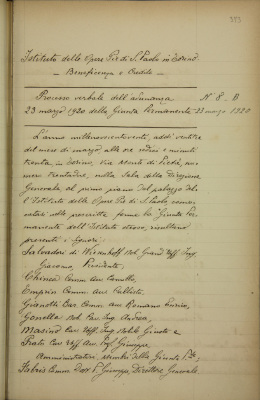 Istituto delle Opere Pie di S. Paolo in Torino
- Beneficenza e Credito -
Processo verbale dell'adunanza N. 8 - B
23 marzo 1920 della Giunta Permanente 23 marzo 1920
L'anno millenovecentoventi, addì ventitre
del mese di marzo alle ore sedici e minuti
trenta, in Torino, Via Monte di Pietà, nu-
mero trentadue, nella Sala della Direzione
Generale al primo piano del palazzo del-
l'Istituto delle Opere Pie di S. Paolo convo-
catasi nelle prescritte forme la Giunta Per-
manente dell'Istituto stesso, risultano
presenti i Signori:
Salvadori di Wiesenhoff Nob. Grand'Uff. Ing.
Giacomo, Presidente,
Comm. Avv. Camillo,
Comm. Avv. Callisto,
Gianotti Cav. Comm. Avv. Romano Enrico,
Gonella Nob. Cav. Ing. Andrea,
Masino Cav. Uff. Ing. Nobile e
Prato Cav. Uff. Avv. Prof. Giuseppe,
Amministratori membri della Giunta P.te;
Fabris Comm. Dott. P. Giuseppe, Direttore Generale.